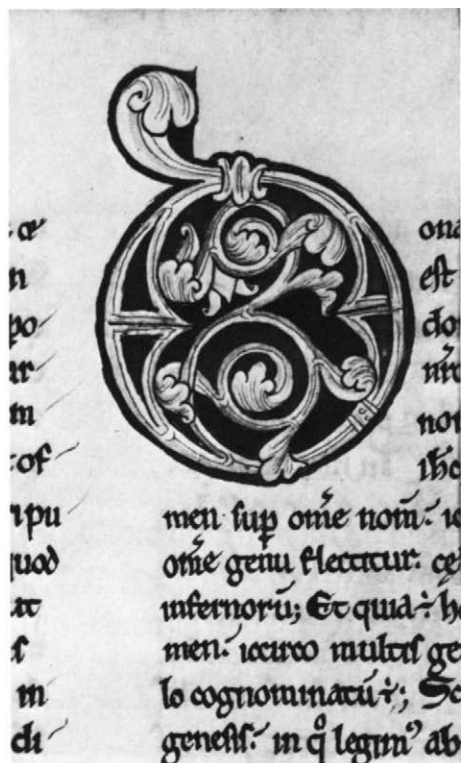 po
tof
ripu
quod
in
di
D
ona
est
do
nom
ihe
men sup om̄e nom̄:
om̄e genu flectitur. cę
infernorū; Et quia ÷ h
men: iccirco multis ge
lo cognominatū ÷; Sc
genesis: in q̊ legim᾽ ab